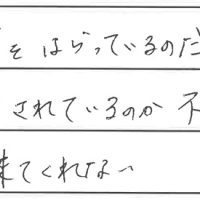 をはらっているのだ
されているのか不
来てくれない